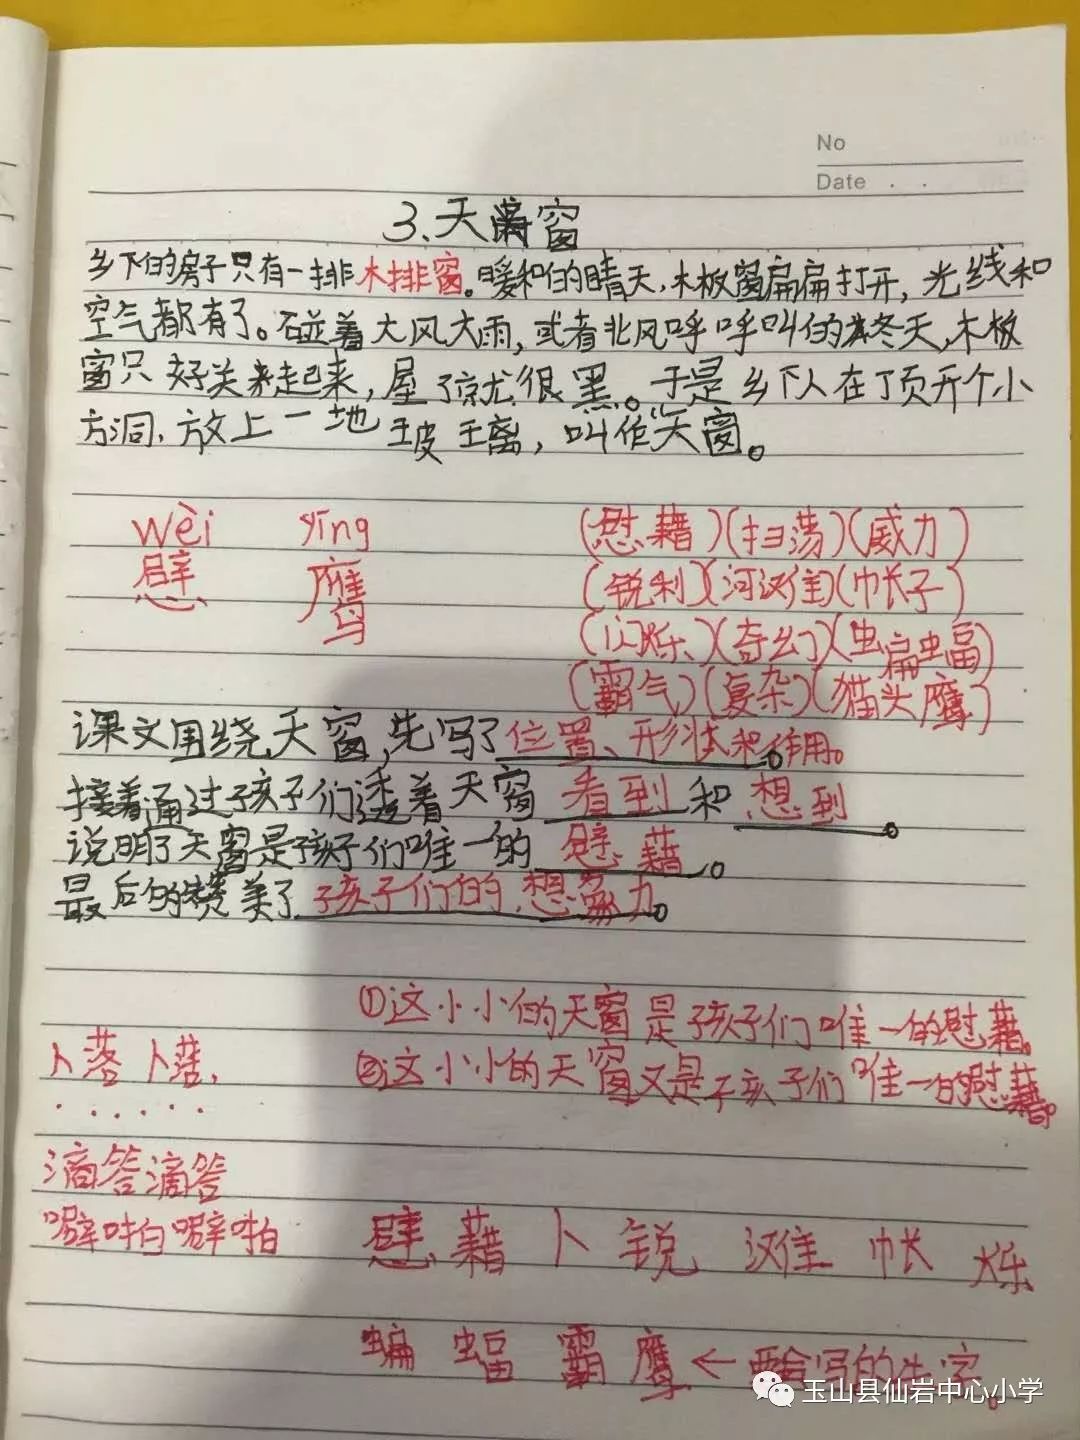 No
Date
3、天窗
乡下的房子只有一排木排窗。暖和的晴天,木板窗扁扁打开,光线和
空气都有了。碰着大风大雨,或者北风呼呼叫的冬天,木板
窗只好关起来,屋了就很黑。于是乡下人在丁页开个小
方洞,放上一地玻璃,叫作天窗。
wèi yīng
慰 鹰
(慰藉)(扫荡)(威力)
(锐利)(河汉隹)(帐子)
(闪烁)(奇幻)(蝙蝠)
(霸气)(复杂)(猫头鹰)
课文围绕天窗,先写了位置、形状和作用。
接着通过孩子们透着天窗 看到 和 想到 。
说明了天窗是孩子们唯一的 慰藉 。
最后的赞美了孩子们的想象力。
①这小小的天窗是孩子们唯一的慰藉。
卜落卜落,
②这小小的天窗又是孩子们唯一的慰藉。
······
滴答滴答
噼啪噼啪
慰 藉 卜 锐 滩 帐 烁
蝙 蝠 霸 鹰 ← 要会写的生字。
玉山县仙岩中心小学